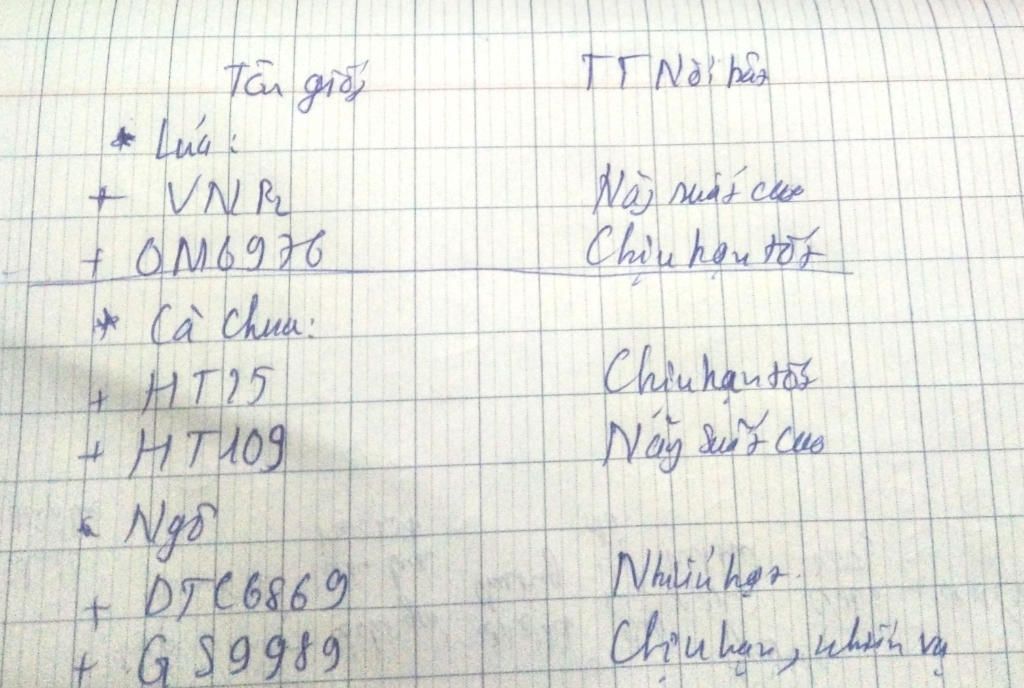 Tên giống TT Nổi bật
* Lúa:
+ VNR2 Năng suất cao
+ OM6976 Chịu hạn tốt
* Cà chua:
+ HT25 Chịu hạn tốt
+ HT109 Năng suất cao
* Ngô
+ DTC6869 Nhiều hạt.
+ GS9989 Chịu hạn, nhiều vụ